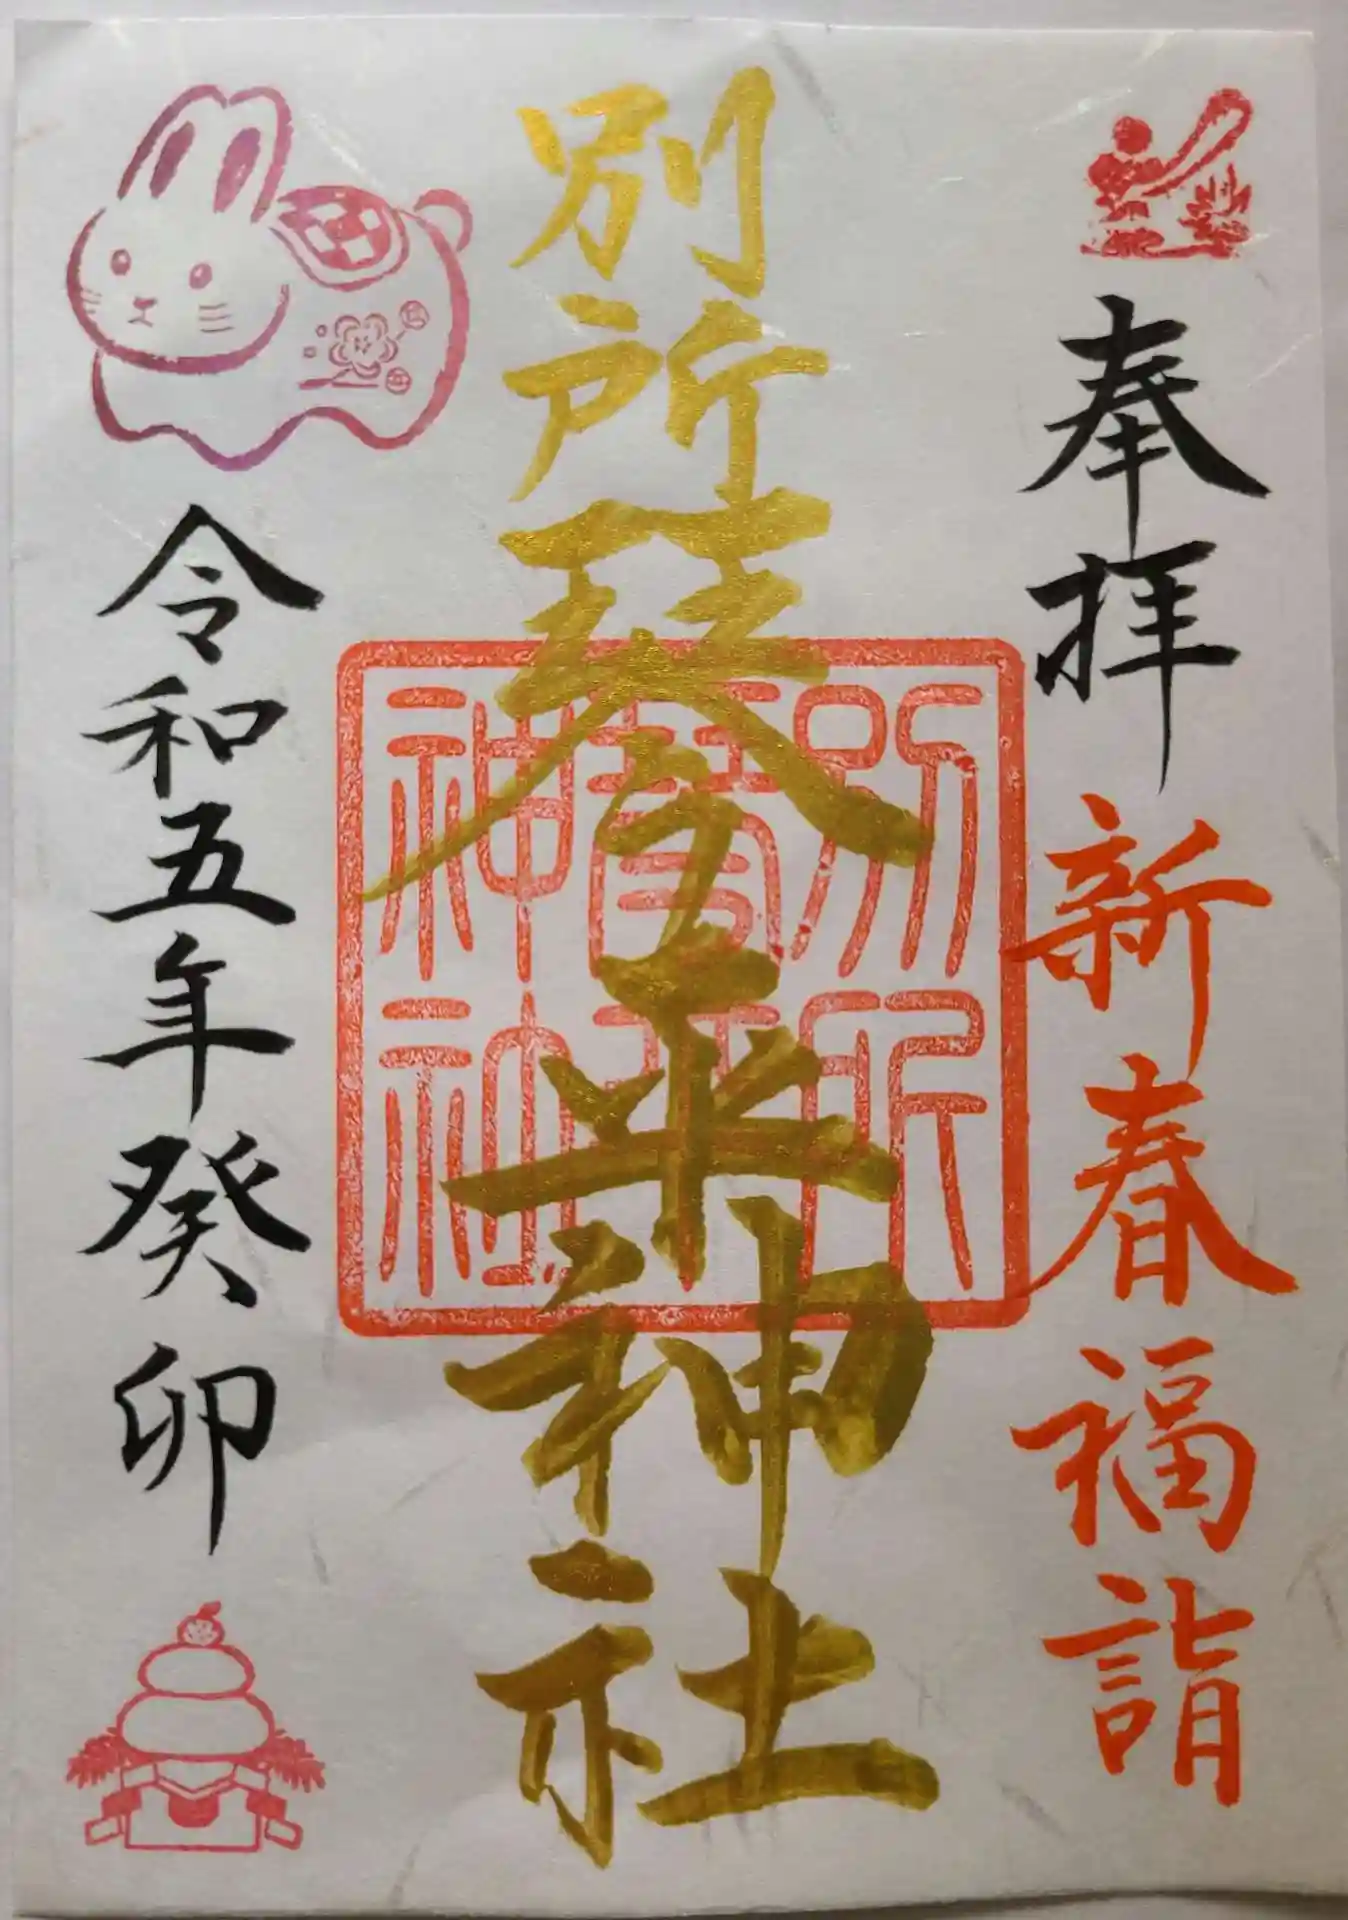 奉拝
新春福詣
別所琴平神社
別所
琴平
神社
令和五年癸卯